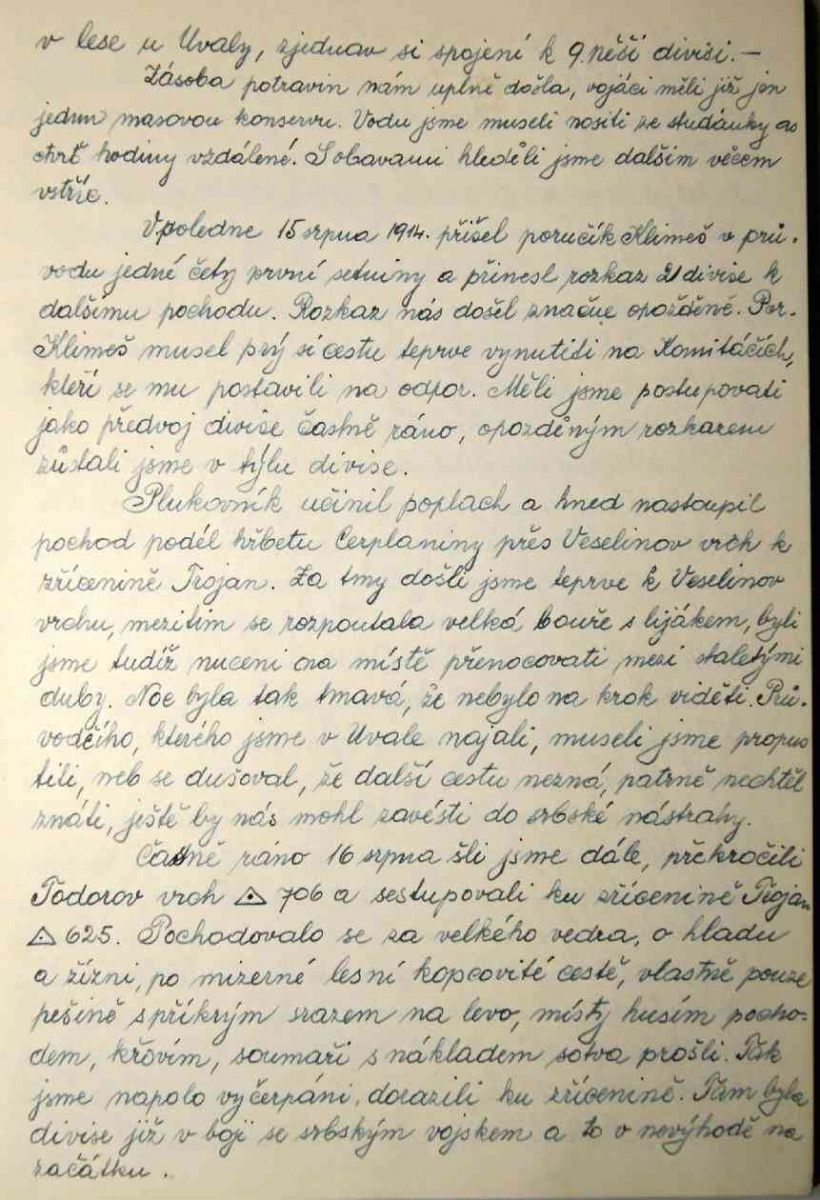 v lese u Uvaly, zjednav si spojení k 9. pěší divisi. —
Zásoba potravin nám uplně došla, vojáci měli již jen
jednu masovou konservu. Vodu jsme museli nositi ze studánky as
čtvrť hodiny vzdálené. S obavami hleděli jsme dalším věcem
vstříc.
V poledne 15 srpna 1914. přišel poručík Klimeš v prů-
vodu jedné čety první setniny a přinesl rozkaz 21 divise k
dalšímu pochodu. Rozkaz nás došel značně opožděně. Por.
Klimeš musel prý si cestu teprve vynutiti na Komitáčích,
kteří se mu postavili na odpor. Měli jsme postupovati
jako předvoj divise časně ráno, opozděným rozkazem
zůstali jsme v týlu divise.
Plukovník učinil poplach a hned nastoupil
pochod podél hřbetu Cerplaniny přes Veselinov vrch k
zřícenině Trojan. Za tmy došli jsme teprve k Veselinov
vrchu, mezitím se rozpoutala velká bouře s lijákem, byli
jsme tudíž nuceni na místě přenocovati mezi staletými
duby. Noc byla tak tmavá, že nebylo na krok viděti. Prů-
vodčího, kterého jsme v Uvale najali, museli jsme propus
tili, neb se dušoval, že další cestu nezná, patrně nechtěl
znáti, ještě by nás mohl zavésti do srbské nástrahy.
Časně ráno 16 srpna šli jsme dále, překročili
Todorov vrch △ 706 a sestupovali ku zřícenině Trojan
△ 625. Pochodovalo se za velkého vedra, o hladu
a žízni, po mizerné lesní kopcovité cestě, vlastně pouze
pěšině s příkrým srazem na levo, místy husím pocho-
dem, křovím, soumaři s nákladem sotva prošli. Tak
jsme napolo vyčerpáni, dorazili ku zřícenině. Tam byla
divise již v boji se srbským vojskem a to v nevýhodě na
začátku.